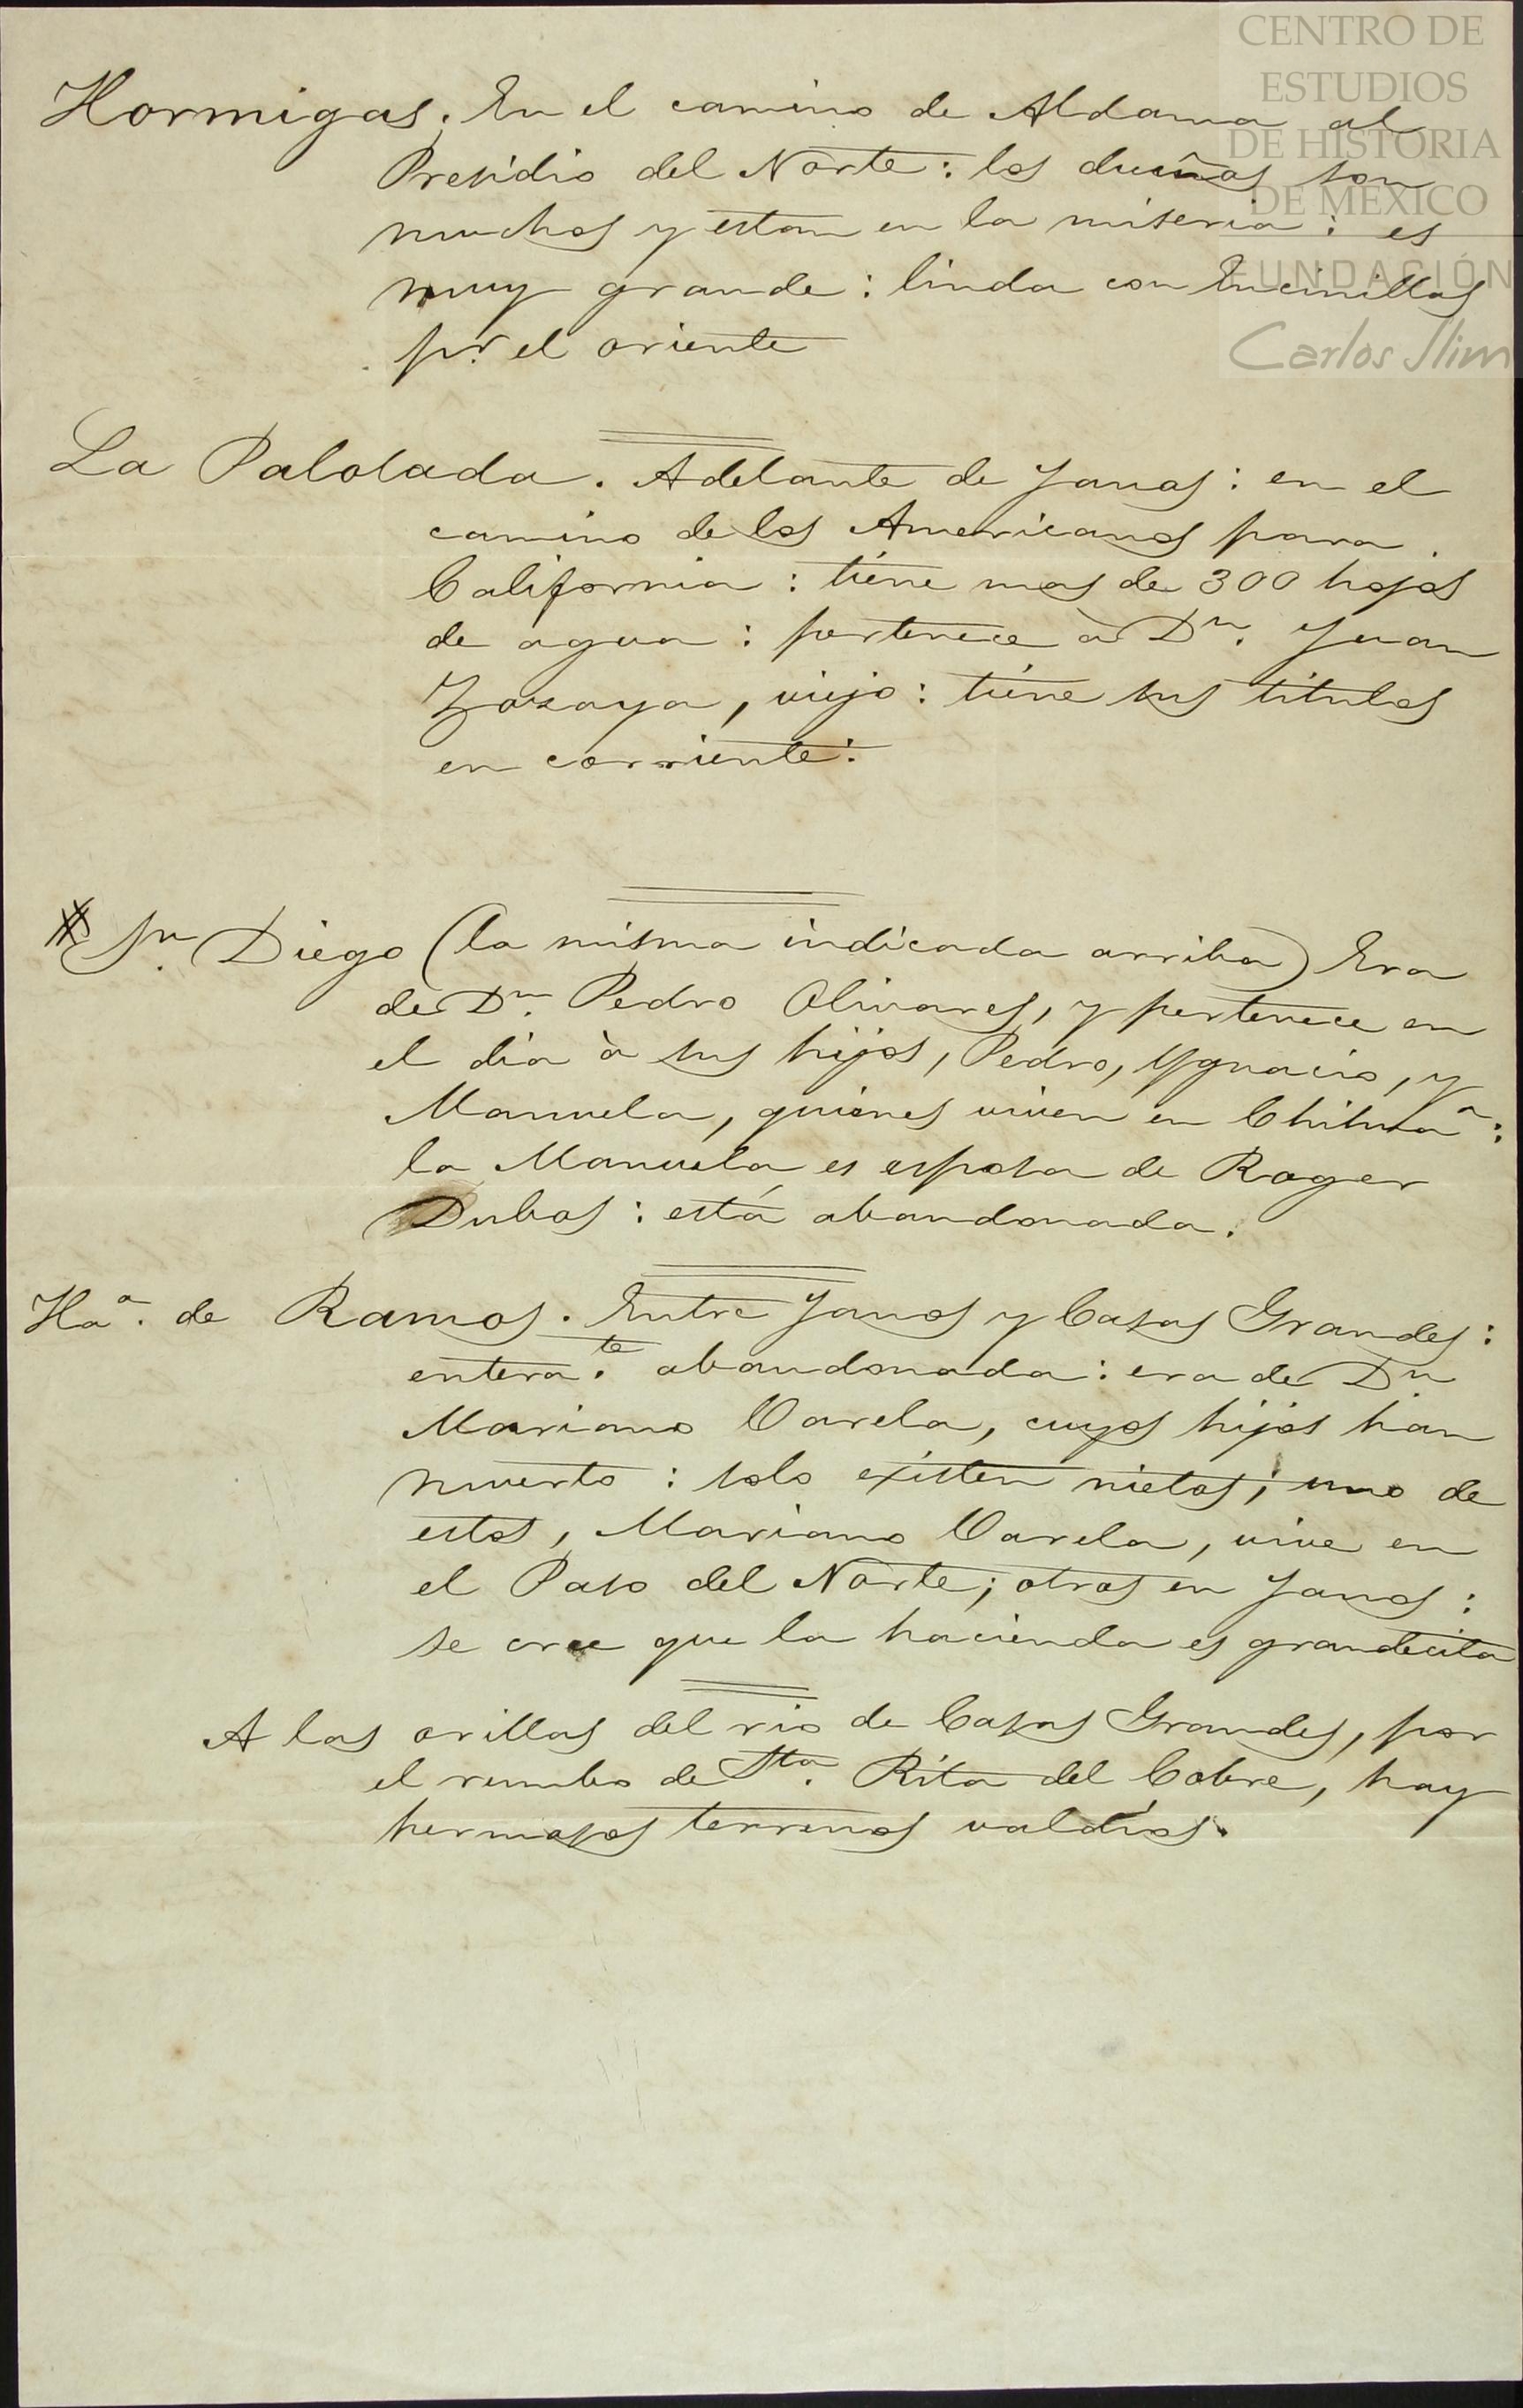 CENTRO DE
ESTUDIOS
DE HISTORIA
DE MÉXICO
FUNDACIÓN
Carlos Slim
Hormigas. En el camino de Aldama al
Presidio del Norte: los dueños son
muchos y estan en la miseria: es
muy grande: linda con Encinillas
pr. el oriente
La Palotada. Adelante de Janos: en el
camino de los Americanos para
California: tiene mas de 300 hojos
de agua: pertenece à Dn. Juan
Zozaya, viejo: tiene sus titulos
en corriente:
# Sn. Diego (la misma indicada arriba) Era
de Dn. Pedro Olivares, y pertenece en
el dia à sus hijos, Pedro, Ygnacio, y
Manuela, quienes viven en Chihua.a:
la Manuela es esposa de Roger
Dubos: está abandonada.
Haa. de Ramos. Entre Janos y Casas Grandes:
entera.te abandonada: era de Dn.
Mariano Varela, cuyos hijos han
muerto: solo existen nietos; uno de
estos, Mariano Varela, vive en
el Paso del Norte; otros en Janos:
se cree que la hacienda es grandecita
A las orillas del rio de Casas Grandes, por
el rumbo de Sta. Rita del Cobre, hay
hermosos terrenos valdíos.